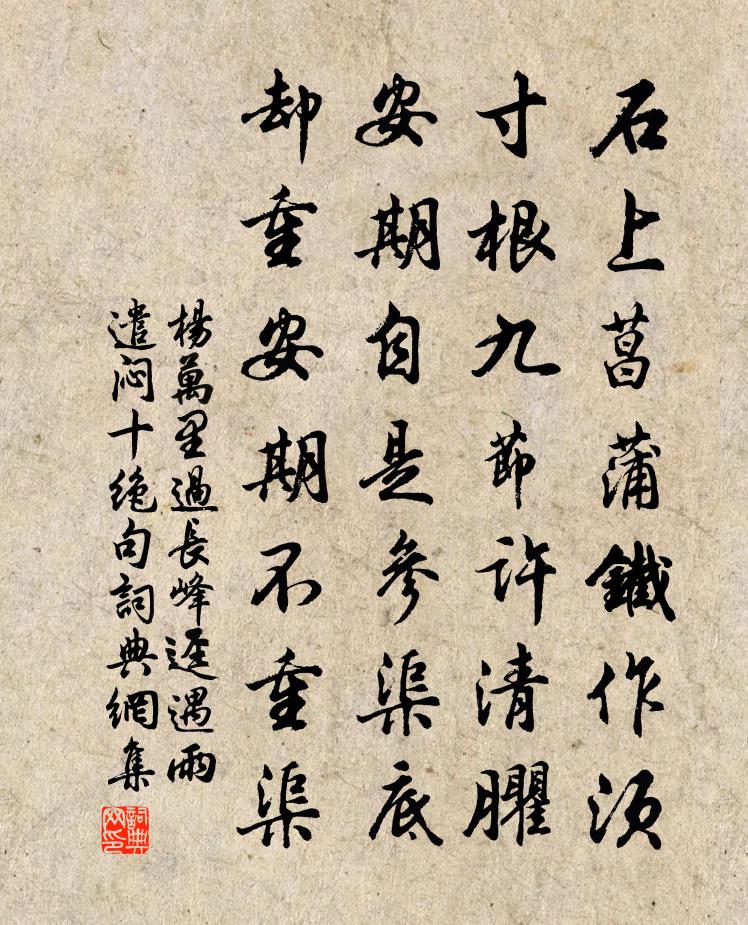 石上菖蒲鐵作須
寸根九節許清臞
安期自是參渠底
却重安期不重渠
楊萬里過長峰逕遇雨
遣悶十絶句詞典網集
詞典网印